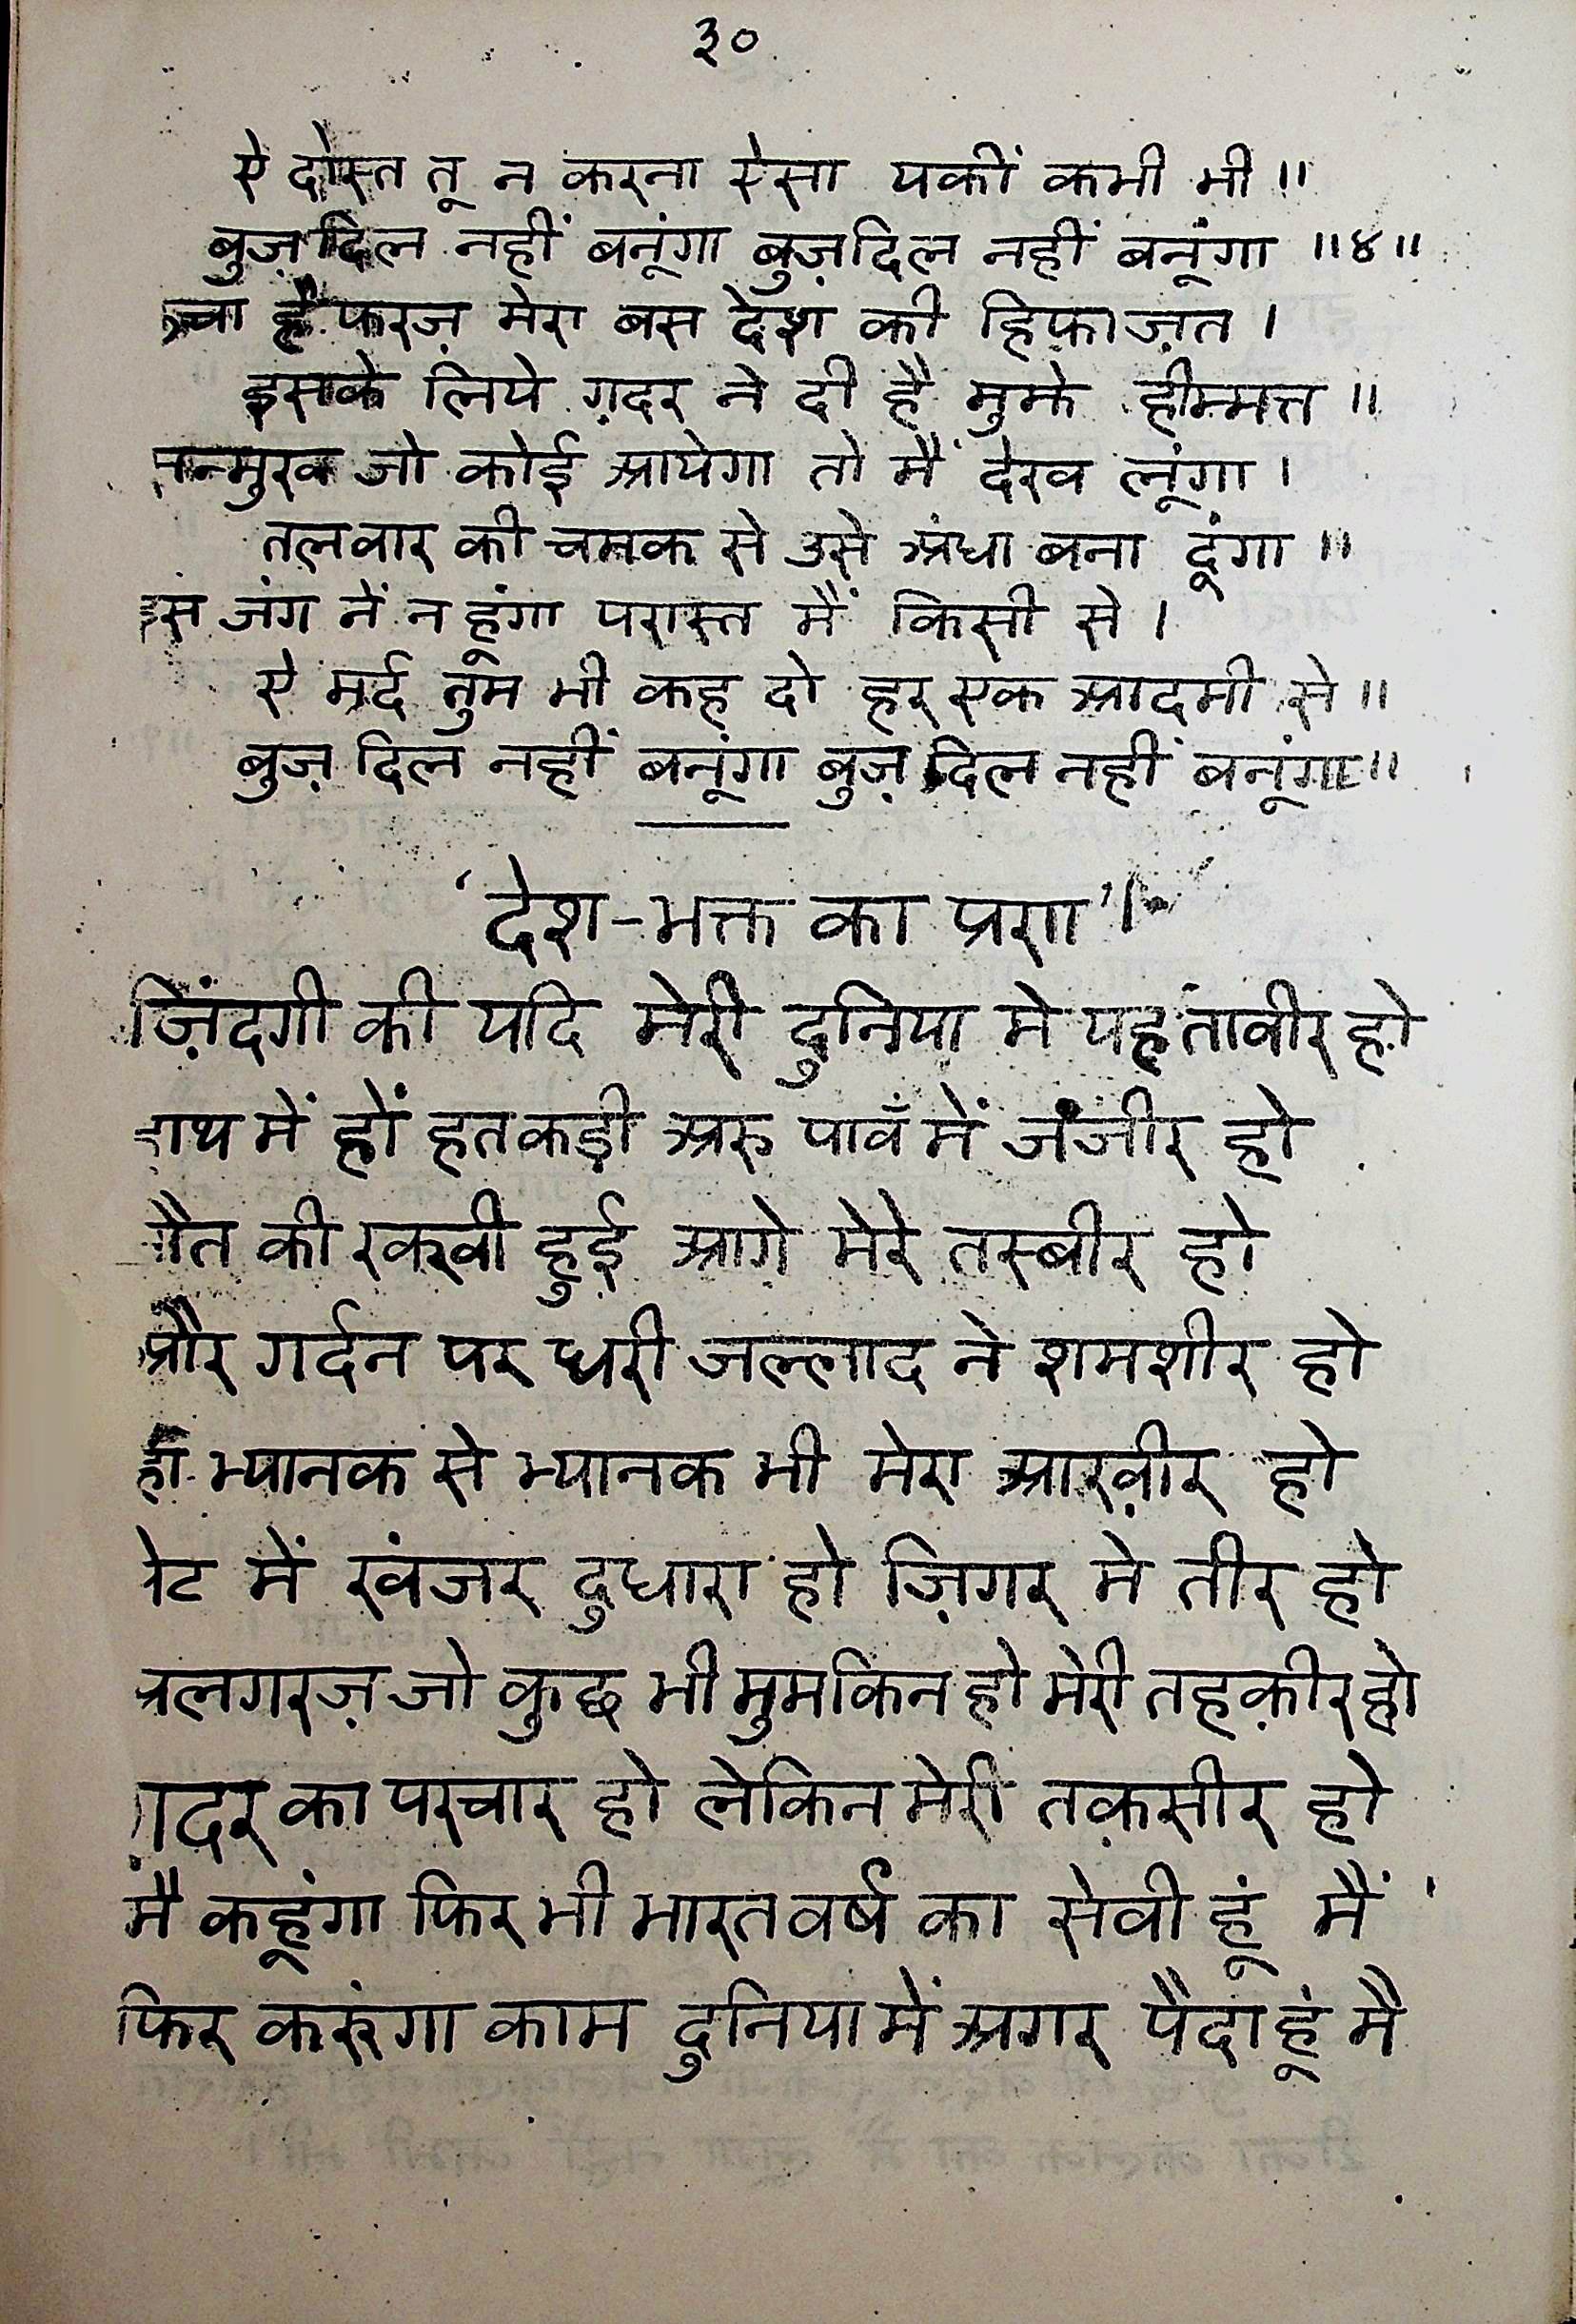 ३०
ऐ दोस्त तू न करना ऐसा यकीं कभी भी ॥
बुज़दिल नहीं बनूंगा बुज़दिल नहीं बनूंगा ॥४॥
है फरज़ मेरा बस देश की हिफ़ाज़त ।
इसके लिये ग़दर ने दी है मुझे हीम्मत्त ॥
सन्मुख जो कोई आयेगा तो मैं देख लूंगा ।
तलवार की चमक से उसे अंधा बना दूंगा ॥
इस जंग नें न हूंगा परास्त मैं किसी से ।
ऐ मर्द तुम भी कह दो हर एक आदमी से ॥
बुज़ दिल नहीं बनूंगा बुज़ दिल नहीं बनूंगा ॥
'देश-भक्त का प्रण' ।
ज़िंदगी की यदि मेरी दुनिया मे यह तावीर हो
हाथ में हों हतकड़ी अरु पावँ में जंजीर हो
मौत की रक्खी हुई आगे मेरे तस्बीर हो
और गर्दन पर धरी जल्लाद ने शमशीर हो
हो भ्यानक से भ्यानक भी मेरा आख़ीर हो
पेट में खंजर दुधारा हो ज़िगर मे तीर हो
अलगरज़ जो कुछ भी मुमकिन हो मेरी तहक़ीर हो
ग़दर का परचार हो लेकिन मेरी तक़सीर हो
मै कहूंगा फिर भी भारत वर्ष का सेवी हूं मैं
फिर करुंगा काम दुनिया में अगर पैदा हूं मै